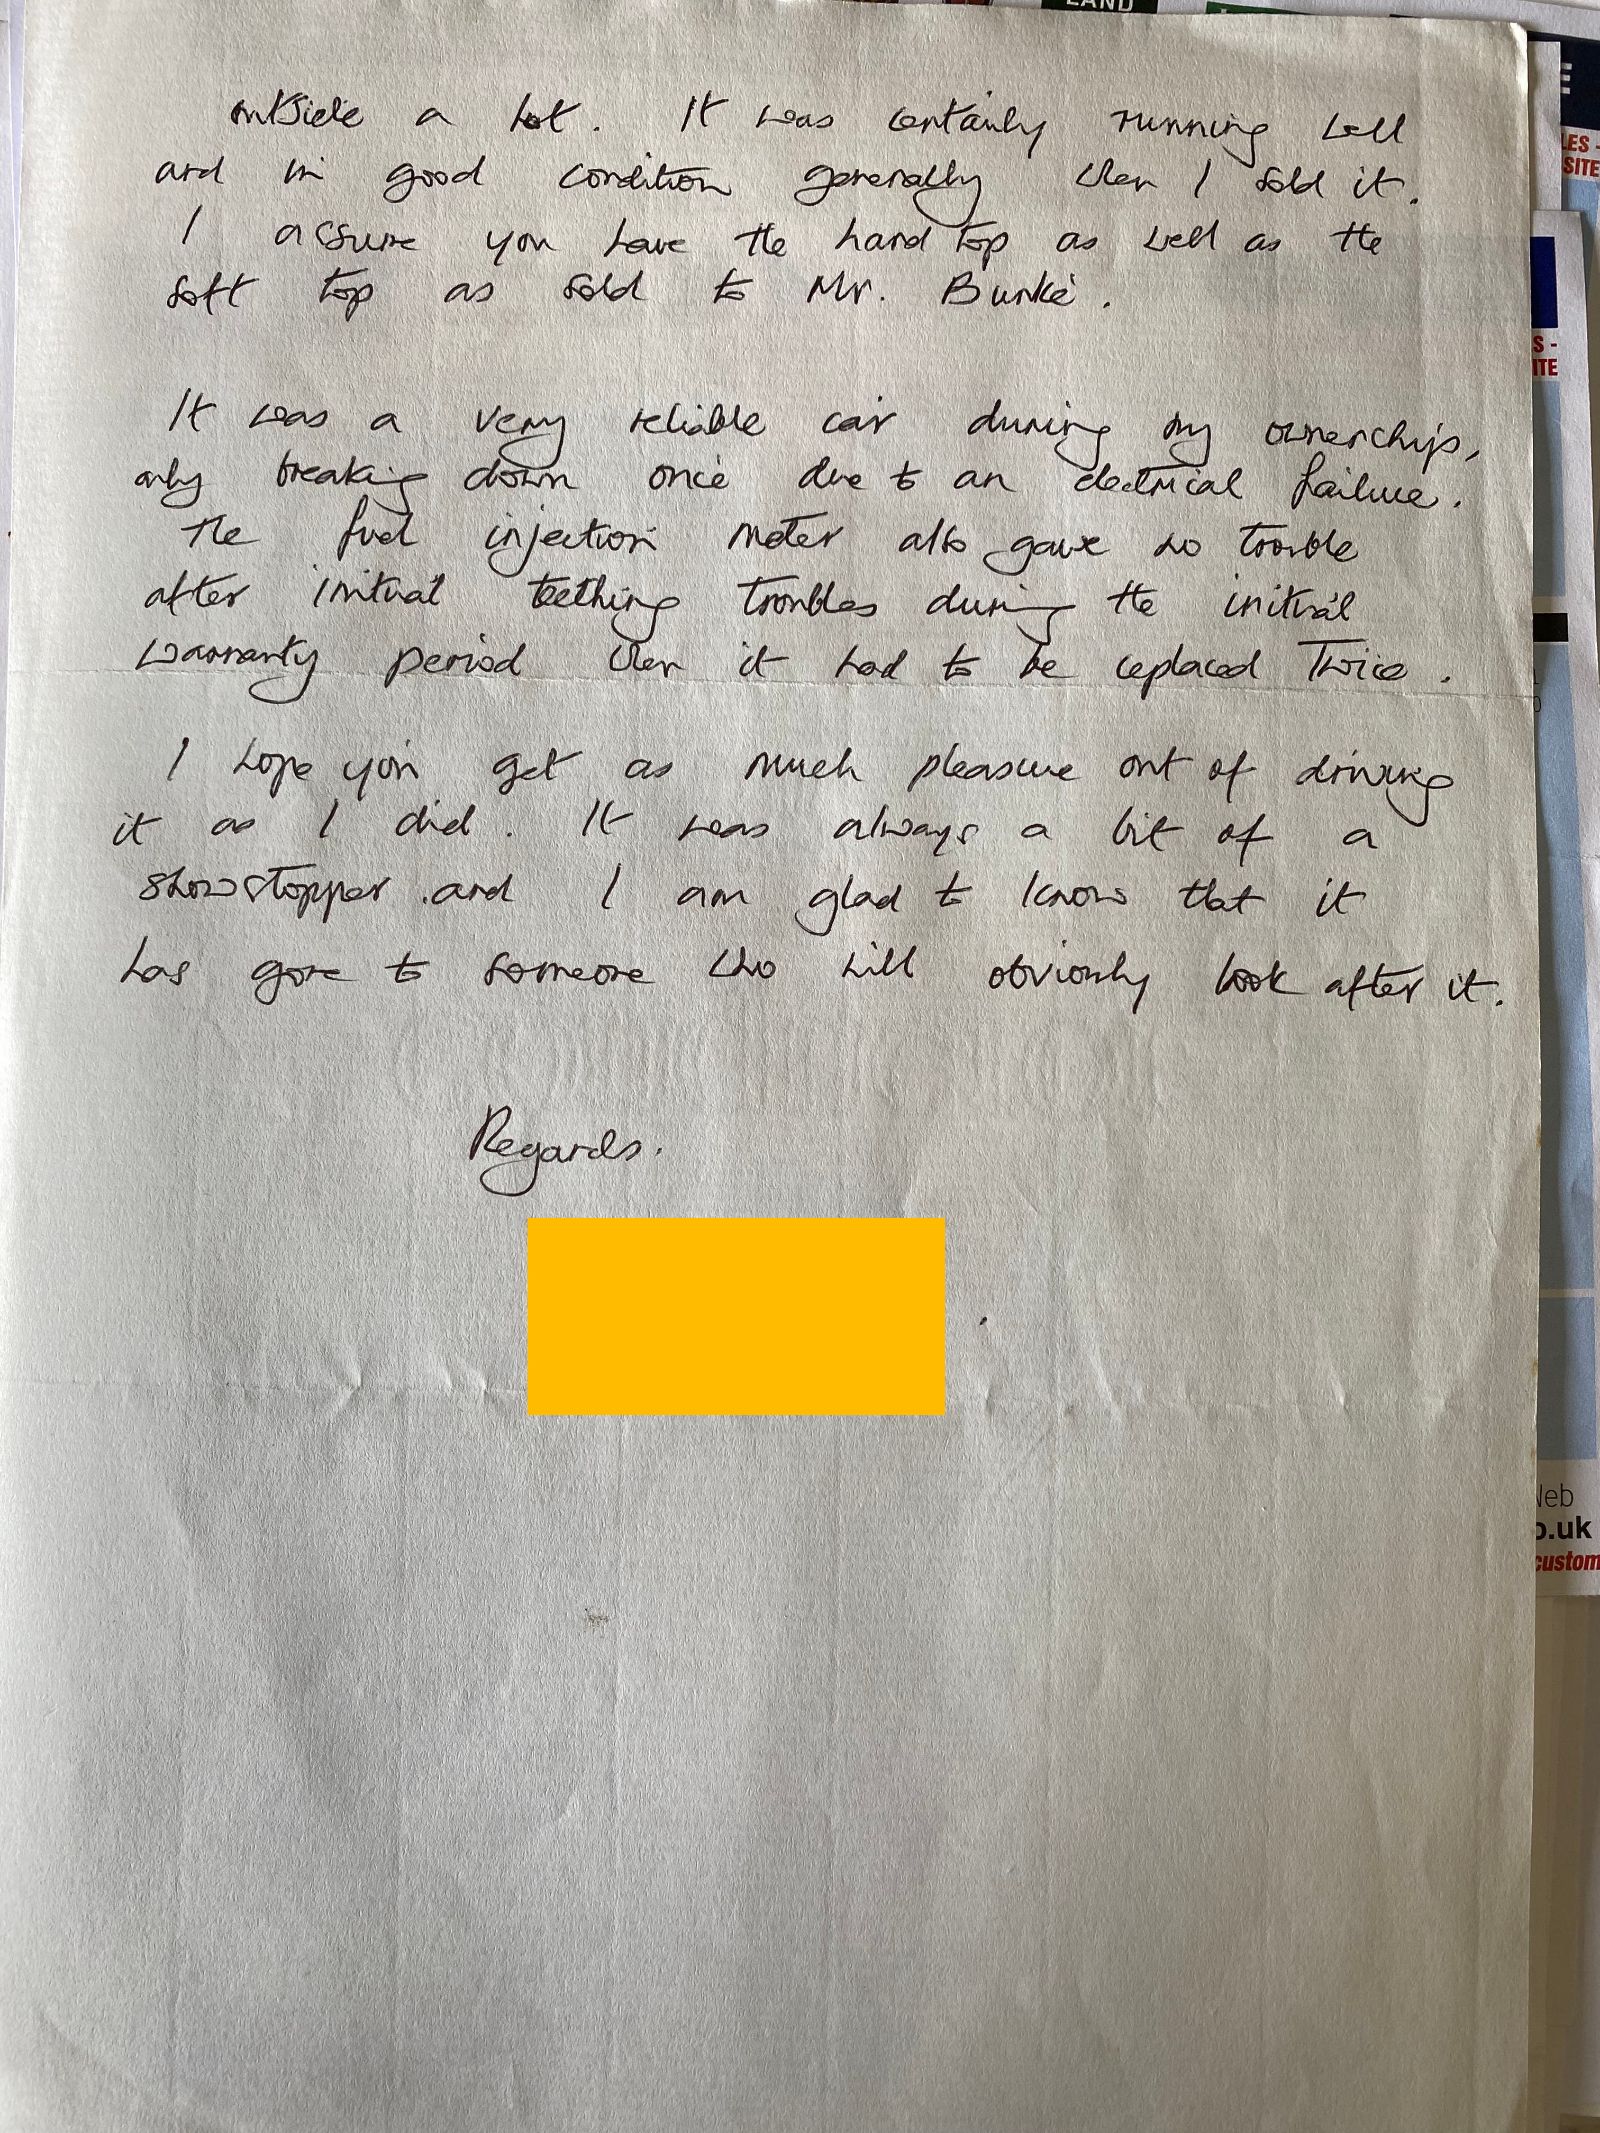 LAND
outside a lot. It was certainly running well
and in good condition generally when I sold it.
I assume you have the hard top as well as the
soft top as sold to Mr. Burke.
It was a very reliable car during my ownership,
only breaking down once due to an electrical failure.
The fuel injection meter also gave no trouble
after initial teething troubles during the initial
warranty period when it had to be replaced Twice.
I hope you get as much pleasure out of driving
it as I did. It was always a bit of a
showstopper and I am glad to know that it
has gone to someone who will obviously look after it.
Regards.
E
LES -
SITE
S -
ITE
Web
o.uk
custom